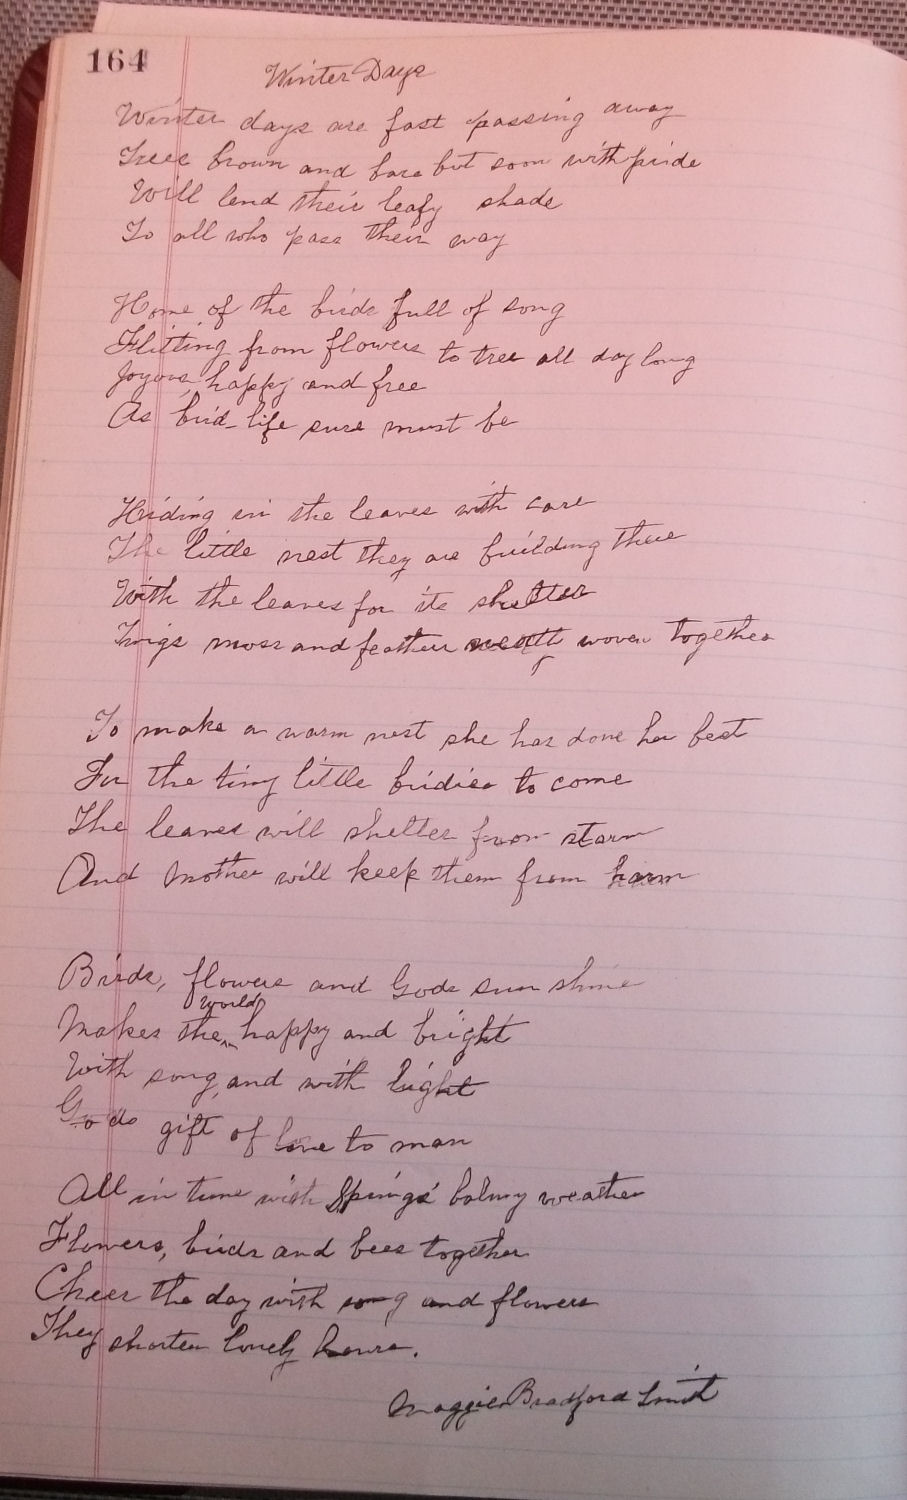 164
Winter Days
Winter days are fast passing away
Trees brown and bare but soon with pride
Will lend their leafy shade
To all who pass their way
Home of the birds full of song
Flitting from flowers to tree all day long
Joyous, happy and free
As bird-life sure must be
Hiding in the leaves with care
The little nest they are building there
With the leaves for its shelter
Twigs moss and feathers woven together
To make a warm nest she has done her best
For the tiny little birdies to come
The leaves will shelter from storm
And Mother will keep them from harm
Birds, flowers and Gods sun shine
Makes the World happy and bright
With song, and with light
Gods gift of love to man
All in tune with Spring's balmy weather
Flowers, birds and bees together
Cheer the day with song and flowers
They shorten lonely hours.
Maggie Bradford Smith